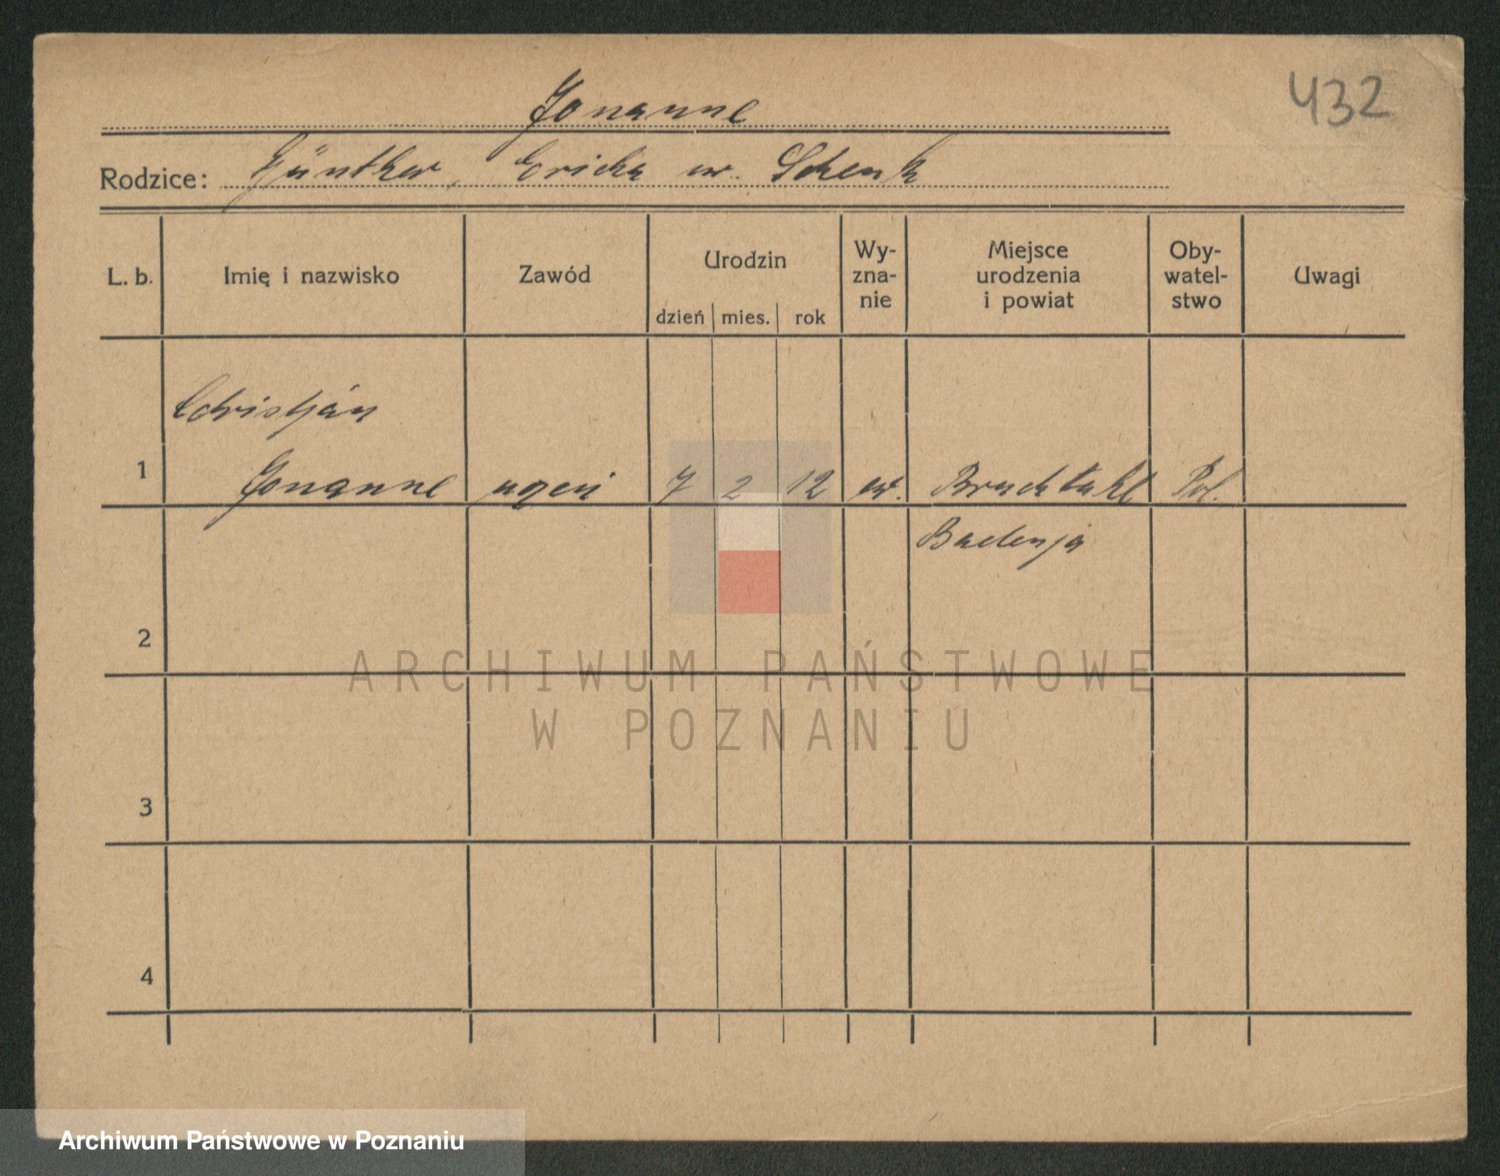 432
Jonanne
Rodzice: Günther, Ericha ew. Schenk
L. b. Imię i nazwisko Zawód Urodzin dzień mies. rok Wy-zna-nie Miejsce urodzenia i powiat Oby-watel-stwo Uwagi
Christján
1 Jonanne uczeń 7 2 12 ew. Bruchtahl Pol.
Badenja
2
3
4
ARCHIWUM PAŃSTWOWE
W POZNANIU
Archiwum Państwowe w Poznaniu